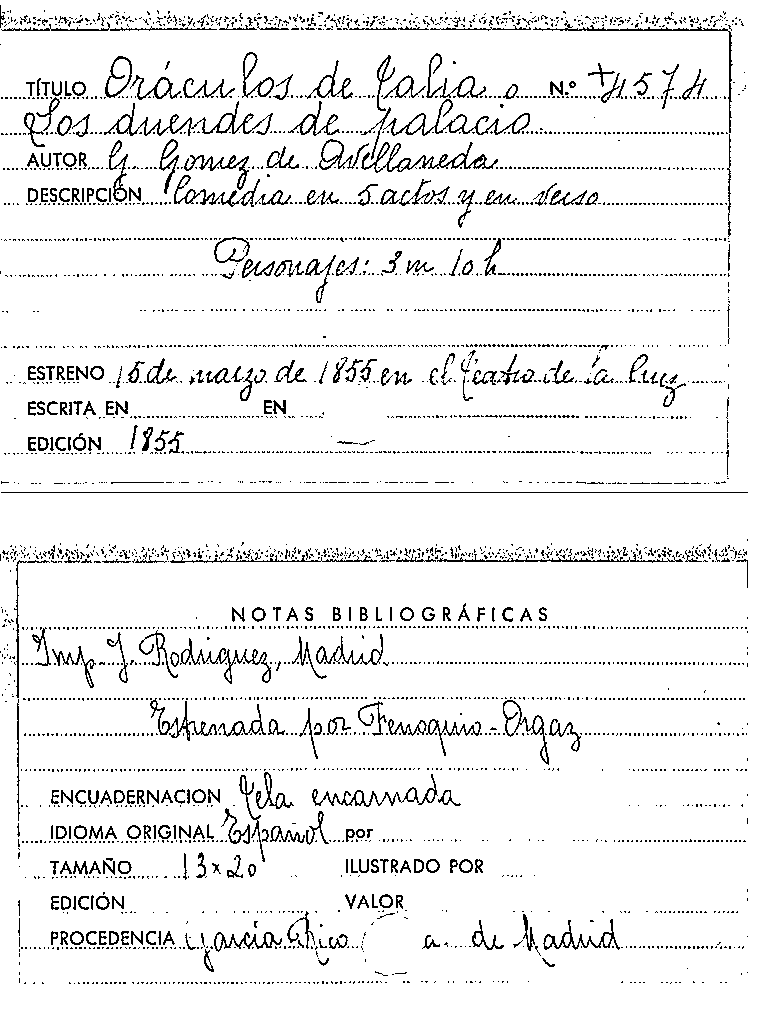 TÍTULO Oráculos de Talia o N.º +4574
Los duendes de palacio.
AUTOR G. Gomez de Avellaneda
DESCRIPCIÓN Comedia en 5 actos y en verso
Personajes: 3 m 10 h
ESTRENO 15 de marzo de 1855 en el Teatro de la Cruz
ESCRITA EN EN
EDICIÓN 1855 —
NOTAS BIBLIOGRÁFICAS
Imp. J. Rodriguez, Madrid
Estrenada por Fenoquio - Orgaz
ENCUADERNACION Tela encarnada
IDIOMA ORIGINAL Español por
TAMAÑO 13 x 20 ILUSTRADO POR
EDICIÓN VALOR
PROCEDENCIA García Rico a. de Madrid